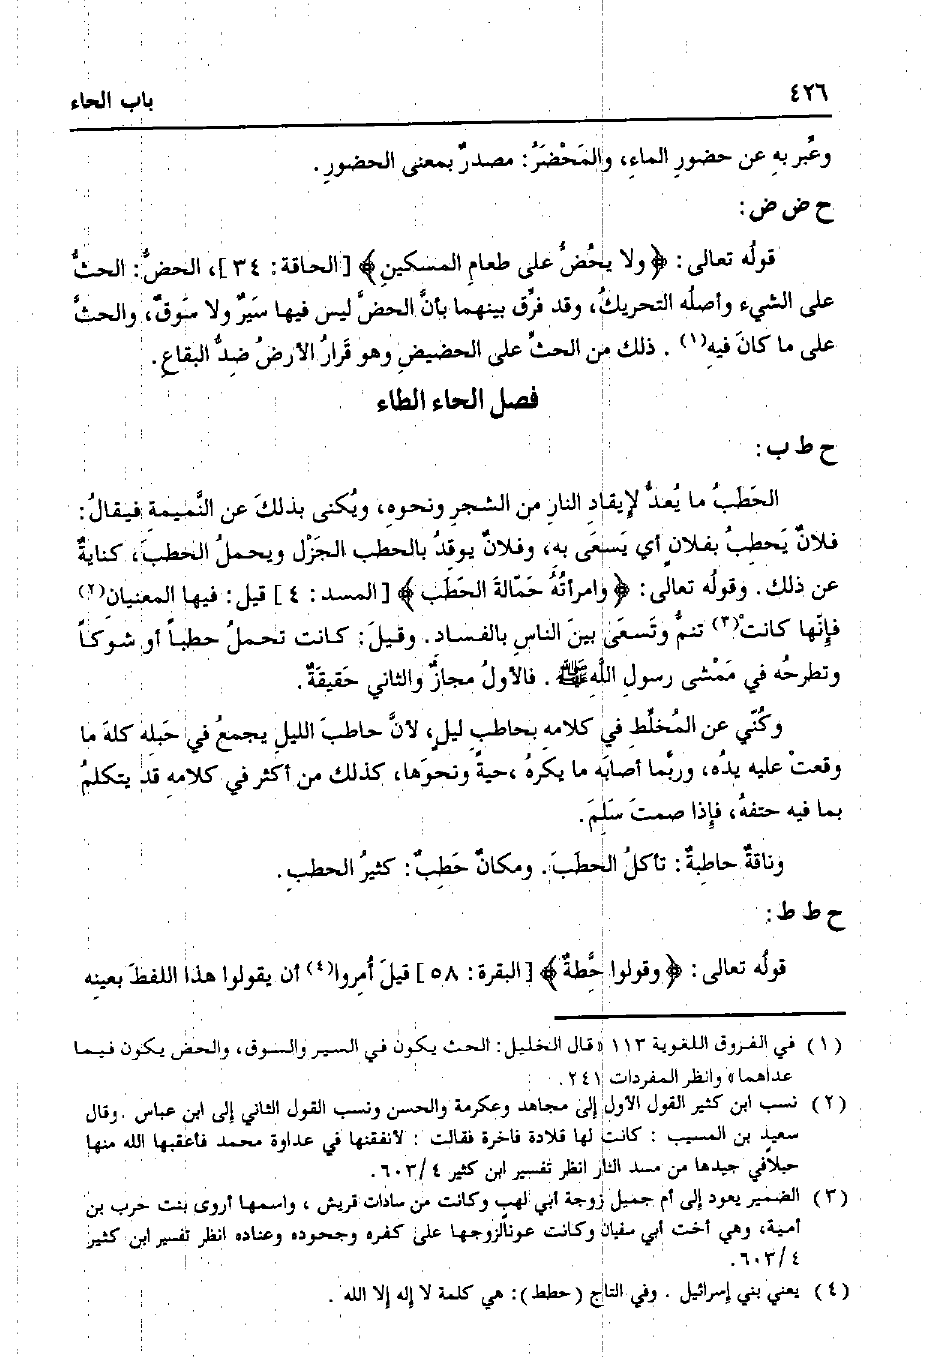 ٤٢٦ باب الحاء
وعُبر به عن حضورِ الماءِ، والمَحْضَرُ: مصدرٌ بمعنى الحضورِ.
ح ض ض:
قولُه تعالى: ﴿ولا يحُضُّ على طعامِ المسكينِ﴾ [الحاقة: ٣٤]، الحضُّ: الحثُّ
على الشيء وأصلُه التحريكُ، وقد فرِّق بينهما بأنَّ الحضَّ ليس فيها سَيَرٌ ولا سَوقٌ، والحثَّ
على ما كانَ فيهِ(١). ذلك من الحثِّ على الحضيضِ وهو قَرارُ الأرضُ ضِدُّ البقاعِ.
فصل الحاء الطاء
ح ط ب:
الحَطَبُ ما يُعدُّ لإيقادِ النارِ من الشجرِ ونحوِهِ، ويُكنى بذلكَ عن النَّميمةِ فيقالُ:
فلانٌ يَحطِبُ بفلانٍ أي يَسعَى به، وفلانٌ يوقِدُ بالحطب الجَزْل ويحملُ الحطبَ، كنايةٌ
عن ذلك. وقولُه تعالى: ﴿وامرأتُهُ حَمّالةَ الحَطَب﴾ [المسد: ٤] قيل: فيها المعنيانِ(٢)
فإنّها كانتْ(٣) تنمُّ وتَسعَى بينَ الناسِ بالفسادِ. وقيلَ: كانت تحملُ حطباً أو شوكاً
وتطرحُه في مَمْشى رسولِ اللَّهِ ﷺ. فالأولُ مجازٌ والثاني حَقيقَةٌ.
وكُنّي عن المُخلِّطِ في كلامهِ بحاطبِ ليلٍ، لأنَّ حاطبَ الليلِ يجمعُ في حَبلِه كلهَ ما
وقعتْ عليه يدُه، وربَّما أصابَه ما يكرهُ ،حيةً ونحوَها، كذلك من أكثر في كلامهِ قد يتكلمُ
بما فيه حتفهُ، فإذا صمتَ سَلِمَ.
وناقةٌ حاطِبةٌ: تأكلُ الحطَبَ. ومكانٌ حَطِبٌ: كثيرُ الحطبِ.
ح ط ط:
قولُه تعالى: ﴿وقولوا حِطَّةٌ﴾ [البقرة: ٥٨] قيلَ أُمِروا(٤) أن يقولوا هذا اللفظَ بعينِه
(١) في الفروق اللغوية ١١٣ «قال الخليل: الحث يكون في السير والسوق، والحض يكون فيما
عداهما» وانظر المفردات ٢٤١.
(٢) نسب ابن كثير القول الأول إلى مجاهد وعكرمة والحسن ونسب القول الثاني إلى ابن عباس .وقال
سعيد بن المسيب : كانت لها قلادة فاخرة فقالت : لأنفقنها في عداوة محمد فأعقبها الله منها
حبلاًفي جيدها من مسد النار انظر تفسير ابن كثير ٦٠٣/٤.
(٣) الضمير يعود إلى أم جميل زوجة أبي لهب وكانت من سادات قريش ، واسمها أروى بنت حرب بن
أمية، وهي أخت أبي سفيان وكانت عونالزوجها على كفره وجحوده وعناده انظر تفسير ابن كثير
٦٠٣/٤.
(٤) يعني بني إسرائيل . وفي التاج (حطط): هي كلمة لا إله إلا الله .